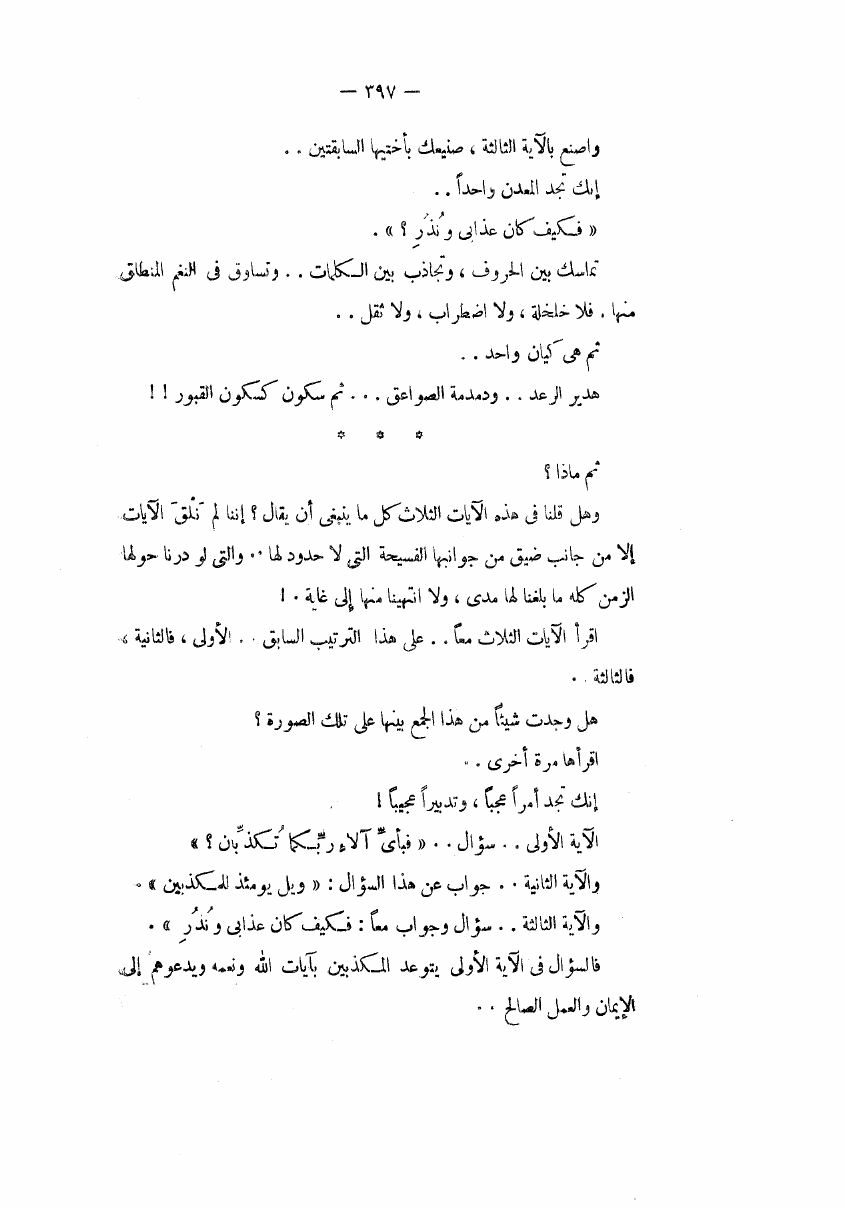 — ٣٩٧ —
واصنع بالآية الثالثة ، صنيعك بأختيها السابقتين . .
إنك تجد المعدن واحداً . .
« فكيف كان عذابى ونُذُرِ ؟ » .
تماسك بين الحروف ، وتجاذب بين الكلمات . . وتساوق فى النغم المنطلق
منها . فلا خلخلة ، ولا اضطراب ، ولا ثقل . .
ثم هى كيان واحد . .
هدير الرعد . . ودمدمة الصواعق . . . ثم سكون كسكون القبور ! !
* * *
ثم ماذا ؟
وهل قلنا فى هذه الآيات الثلاث كل ما ينبغى أن يقال ؟ إننا لم نَلْقَ الآيات
إلا من جانب ضيق من جوانبها الفسيحة التى لا حدود لها . . والتى لو درنا حولها
الزمن كله ما بلغنا لها مدى ، ولا انتهينا منها إلى غاية . !
اقرأ الآيات الثلاث معاً . . على هذا الترتيب السابق . . الأولى ، فالثانية ،
فالثالثة .
هل وجدت شيئاً من هذا الجمع بينها على تلك الصورة ؟
اقرأها مرة أخرى . .
إنك تجد أمراً عجباً ، وتدبيراً عجيباً !
الآية الأولى . . سؤال . . « فبأىِّ آلاءِ ربِّكما تُكذِّبان ؟ »
والآية الثانية . . جواب عن هذا السؤال : « ويل يومئذ للمكذبين » .
والآية الثالثة . . سؤال وجواب معاً : فكيف كان عذابى ونُذُرِ » .
فالسؤال فى الآية الأولى يتوعد المكذبين بآيات الله ونعمه ويدعوهم إلى
الإيمان والعمل الصالح . .